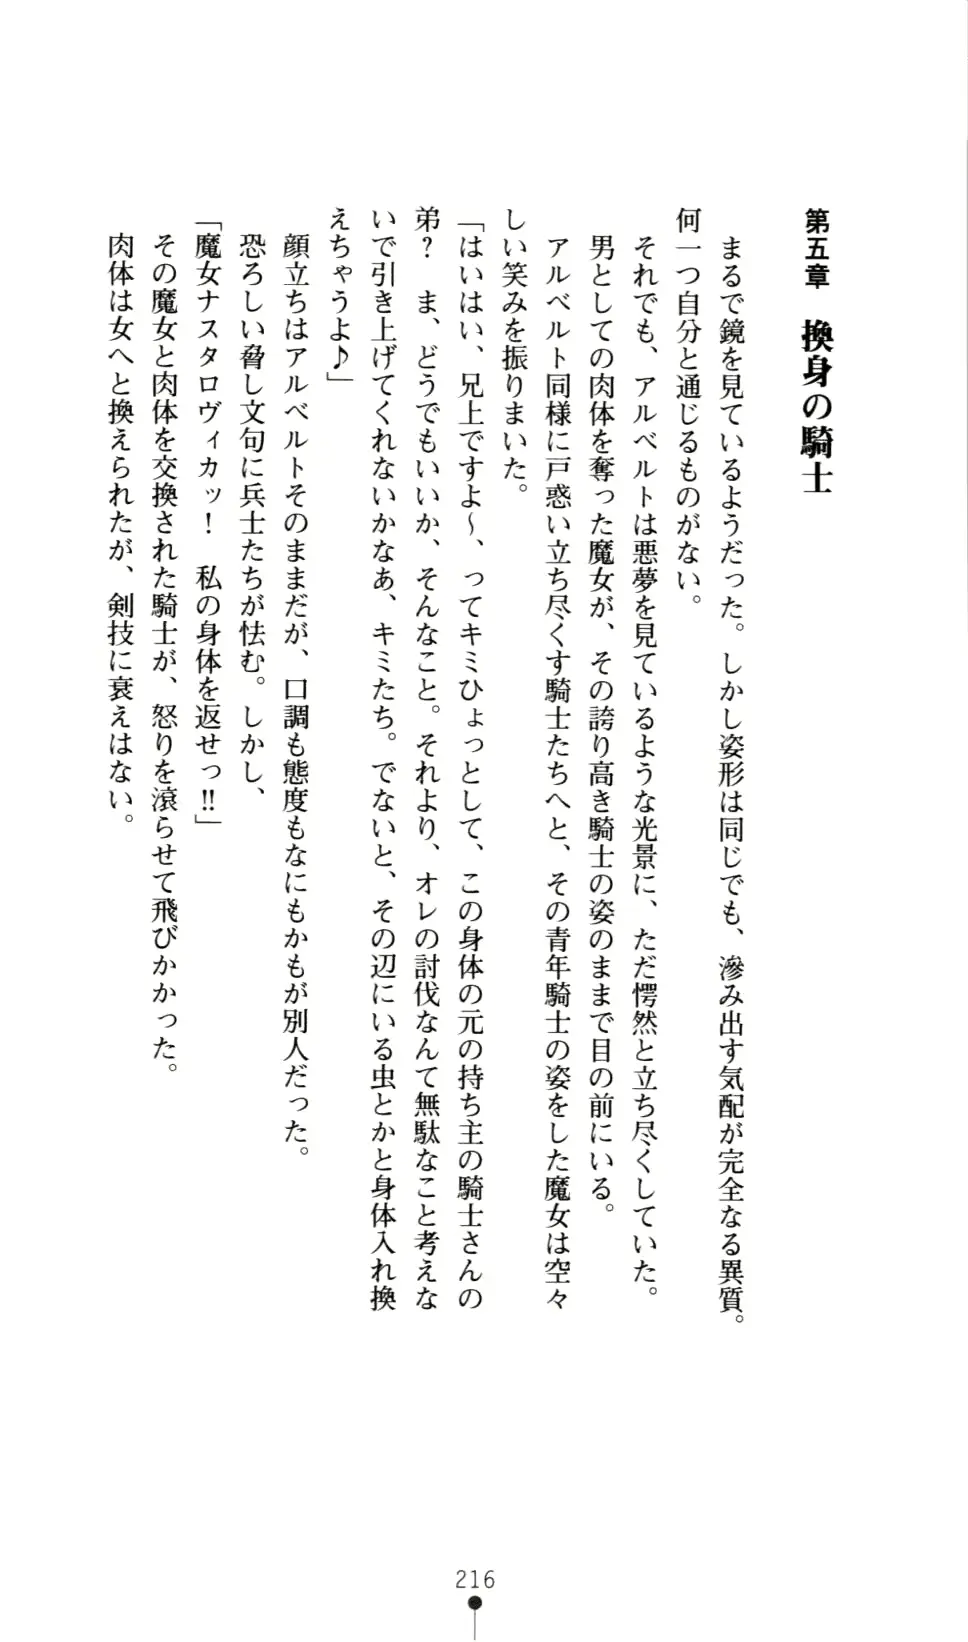 第五章　換身の騎士
　まるで鏡を見ているようだった。しかし姿形は同じでも、滲み出す気配が完全なる異質。
何一つ自分と通じるものがない。
　それでも、アルベルトは悪夢を見ているような光景に、ただ愕然と立ち尽くしていた。
　男としての肉体を奪った魔女が、その誇り高き騎士の姿のままで目の前にいる。
　アルベルト同様に戸惑い立ち尽くす騎士たちへと、その青年騎士の姿をした魔女は空々
しい笑みを振りまいた。
「はいはい、兄上ですよ～、ってキミひょっとして、この身体の元の持ち主の騎士さんの
弟？　ま、どうでもいいか、そんなこと。それより、オレの討伐なんて無駄なこと考えな
いで引き上げてくれないかなあ、キミたち。でないと、その辺にいる虫とかと身体入れ換
えちゃうよ♪」
　顔立ちはアルベルトそのままだが、口調も態度もなにもかもが別人だった。
　恐ろしい脅し文句に兵士たちが怯む。しかし、
「魔女ナスタロヴィカッ！　私の身体を返せっ‼」
　その魔女と肉体を交換された騎士が、怒りを滾らせて飛びかかった。
　肉体は女へと換えられたが、剣技に衰えはない。
216